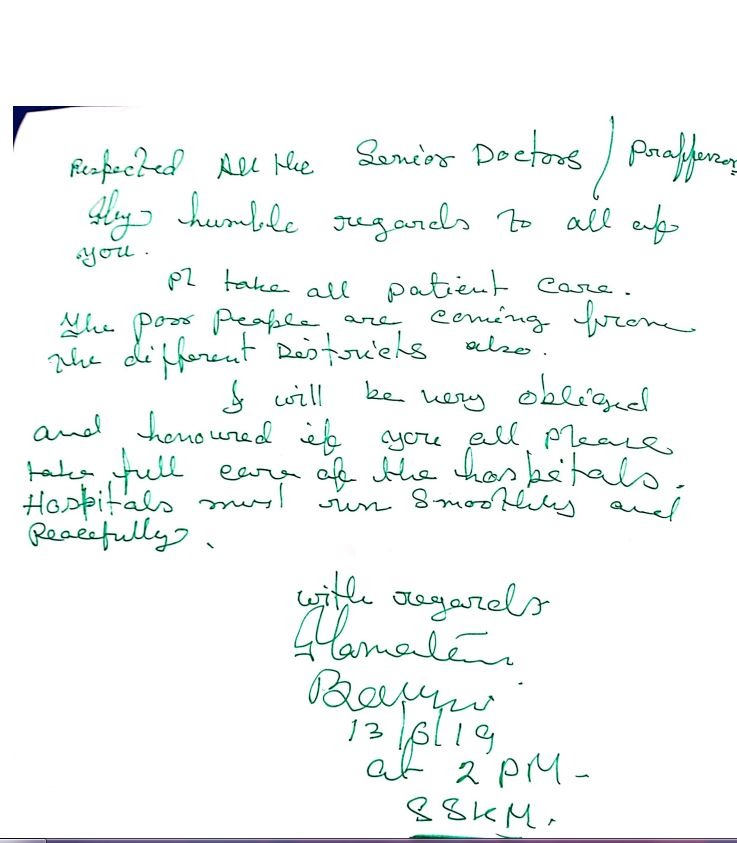 Respected All the Senior Doctors / Proffessor
My humble regards to all of
you.
Pl take all patient care.
The poor People are coming from
the different Districts also.
I will be very obliged
and honoured if you all please
take full care of the hospitals.
Hospitals must run Smoothly and
Peacefully.
with regards
Mamata
13/6/19
at 2 PM -
SSKM.